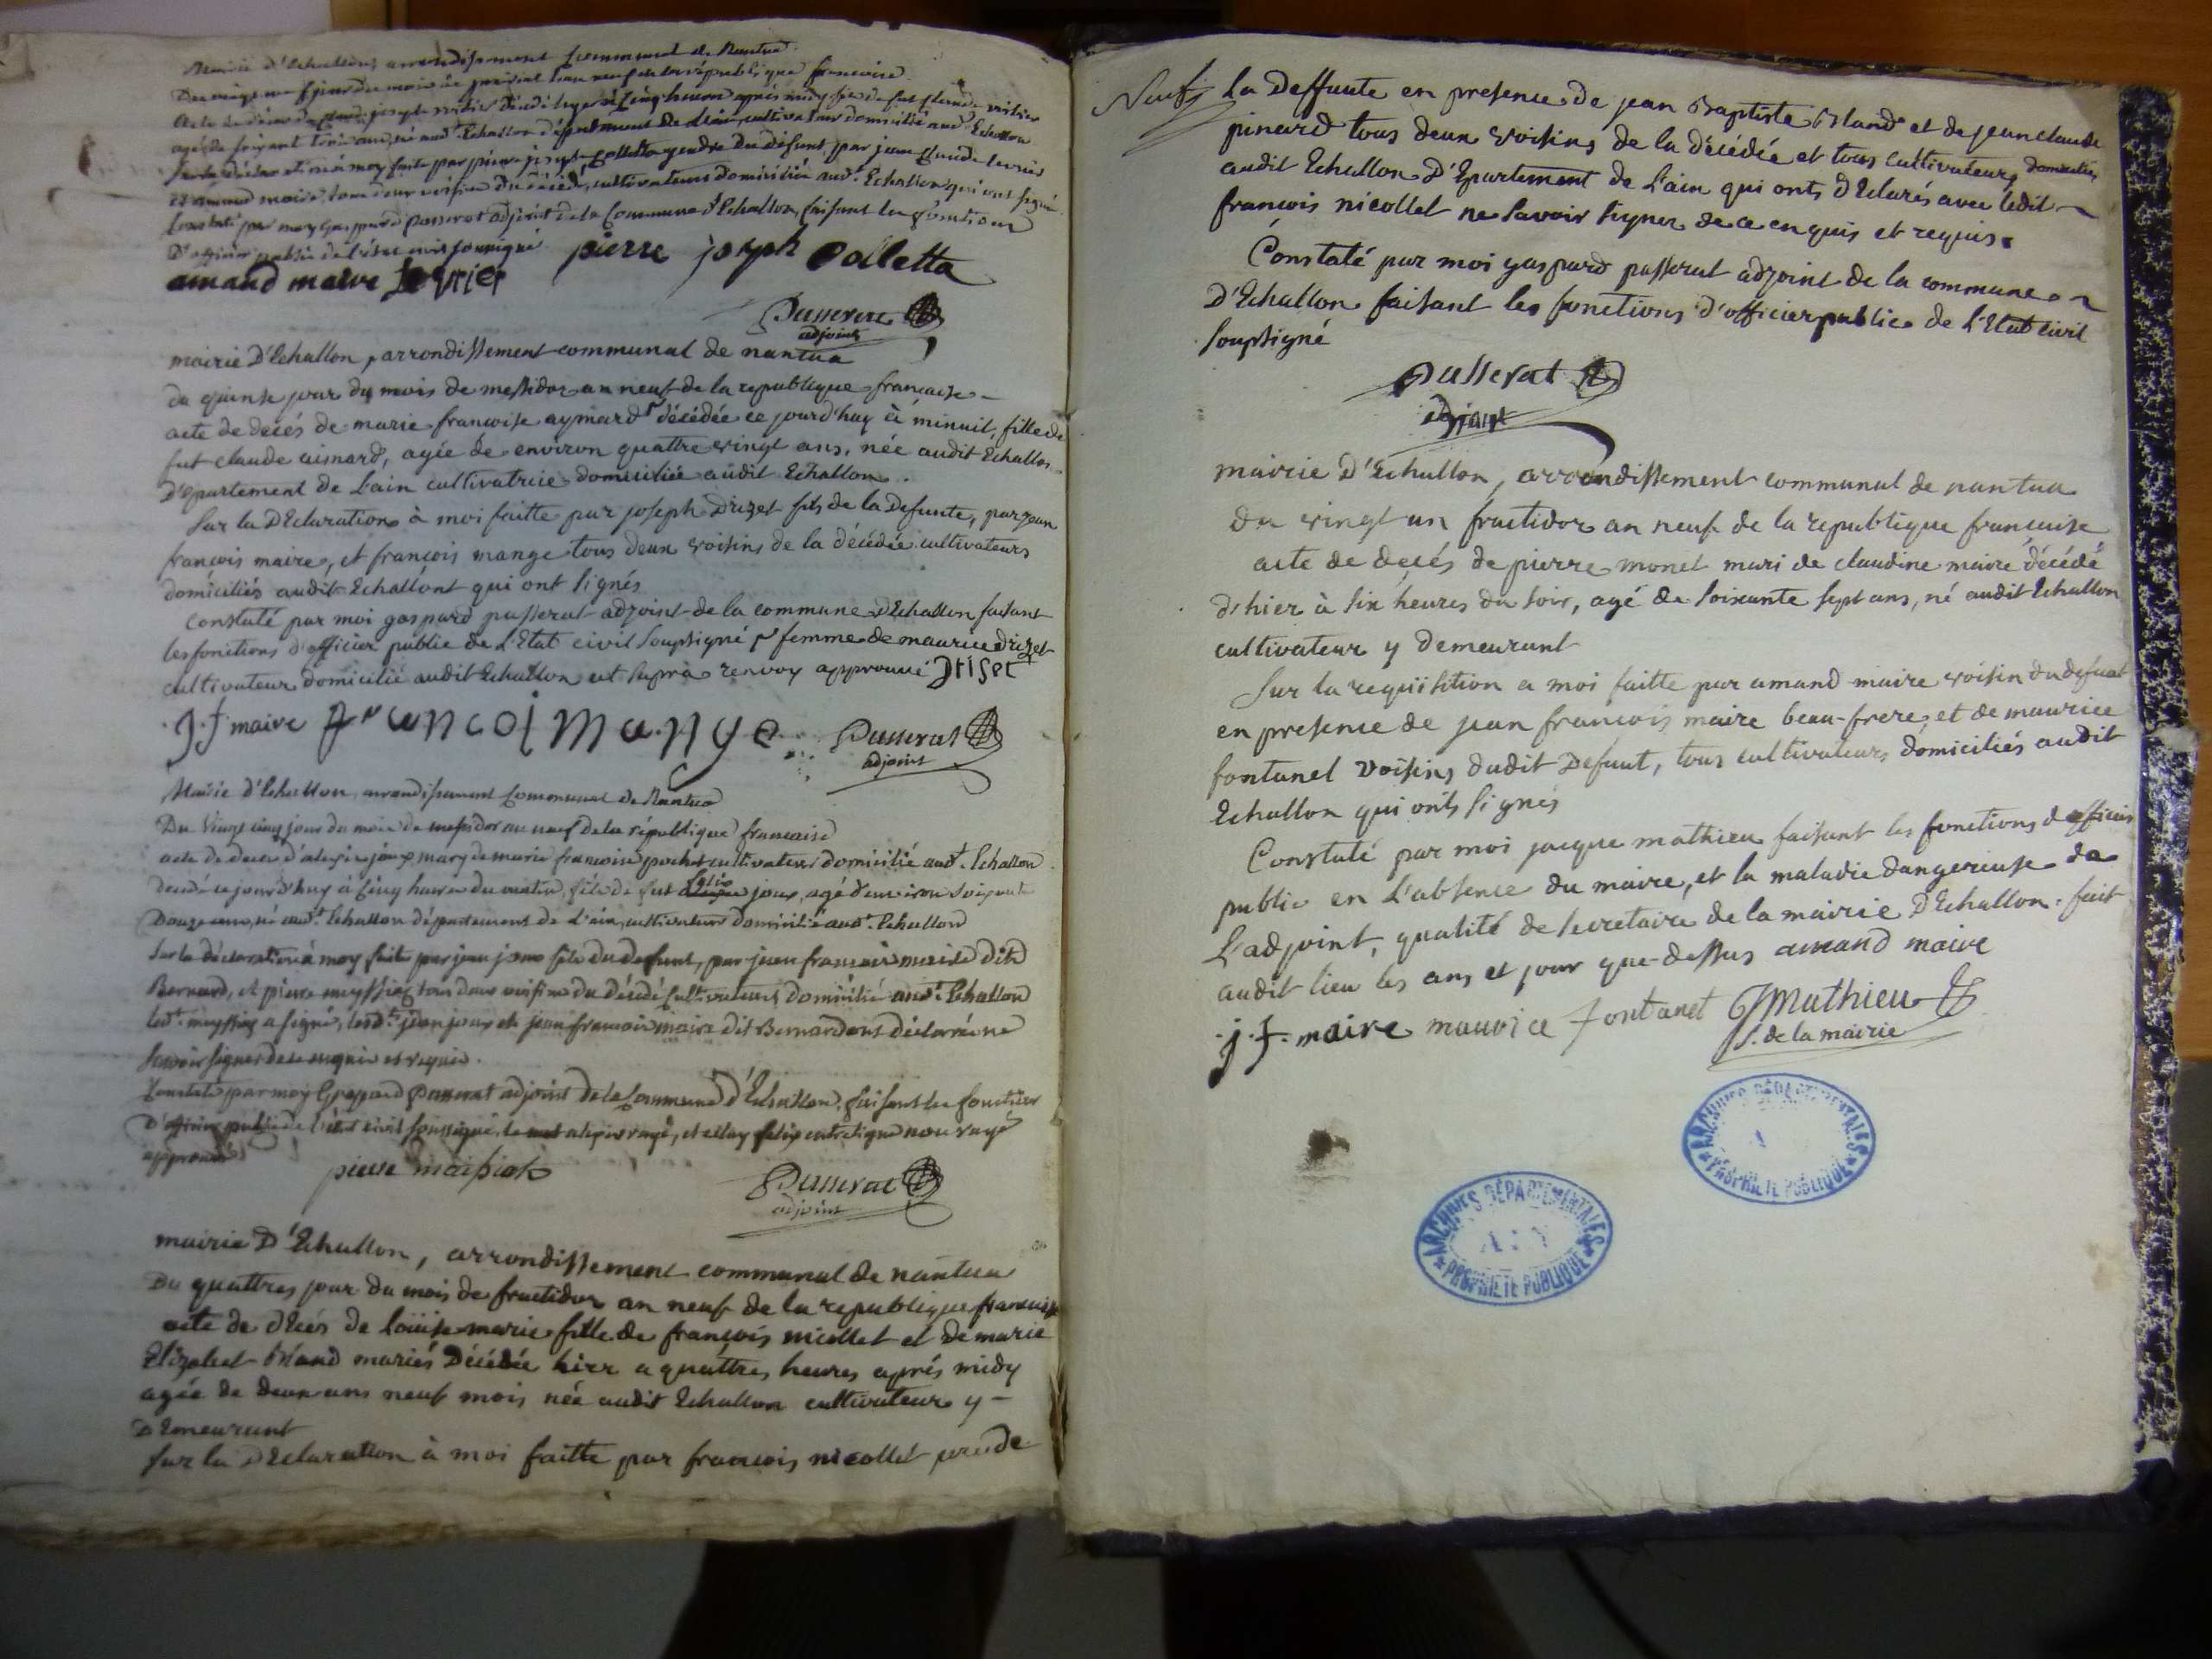 Mairie d'Echallon, arrondissement Communal de Nantua
jour du mois de prairial l'an neuf de la république francoise
Acte de décès de joseph décédé hyer à Cinq heures après midy fils de fut Claude
agé de soixant trois ans, né audt. Echallon département de l'ain, cultivateur domicilié audt. Echallon
Sur la déclaration à moy faite par pierre joseph Colletta gendre du défunt, par jean Claude levrier
et amand maire, tous deux voisins du décédé, cultivateurs domiciliés audt. Echallon qui ont signé.
Constaté par moy Gaspard passerat adjoint de la Commune d'Echallon, faisant les fonctions
D'officier public de l'état civil soussigné
pierre joseph Colletta
amand maire Levrier
Passerat
adjoint
mairie D'Echallon, arrondissement communal de nantua
du quinse jour du mois de messidor an neuf de la republique francaise
acte de decés de marie francoise aymard décédée ce jourd'huy à minuit, fille de
fut claude aimard, agée de environ quattre vingt ans, née audit Echallon
D'epartement de L'ain cultivatrice domiciliée audit Echallon.
Sur la DEclaration à moi faitte par joseph Drizet fils de la Defunte, par jean
francois maire, et francois mange tous deux voisins de la décédée cultivateurs
domiciliés audit Echallont qui ont signés
Constaté par moi gaspard passerat adjoint de la commune D'Echallon faisant
les fonctions d'officier public de L'Etat civil soupsigné femme de maurice drizet
cultivateur domicilié audit Echallon ut supra renvoy approuvé Driset
J. f maire francoi mange
Passerat
adjoint
Mairie d'Echallon, arrondissement Communal de Nantua
Du Vingt cinq jour du mois de messidor an neuf de la république francaise
acte de decès d'alexis joux mary de marie francoise pochet cultivateur domicilié audt. Echallon
decédé ce jourd'huy à Cinq heures du matin, fils de fut joux, agé d'environ soixante
Douze ans, né audt. Echallon département de L'ain, cultivateur domicilié audt. Echallon
Sur la déclaration à moy faite par jean joux fils du defunt, par jean francois maire dit
Bernard, et pierre tous deux voisins du décédé Cultivateurs domicilié audt. Echallon
ledt. a signé, lesdts. jean joux et jean francois maire dit Bernard ont déclaré ne
savoir signer de ce enquis et requis.
Constaté par moy Gaspard Passerat adjoint de la Commune d'Echallon, faisant les fonctions
D'officier public de l'état civil soussigné, le mot rayé, et celuy felix entreligne non rayé
approuvé
pierre
Passerat
adjoint
mairie D'Echallon, arrondissement communal de nantua
Du quattres jour du mois de fructidor an neuf de la republique francaise
acte de dEcés de loüise marie fille de françois nicollet et de marie
Elizabet bland mariés Décédée hier a quattres heures aprés midy
agée de deux ans neuf mois née audit Echallon cultivateur y
DEmeurant
Sur la DEclaration à moi faitte par francois nicollet
Neuf
la Deffunte en presence de jean Baptiste bland et de jean claude
pinard tous deux voisins de la décédée et tous cultivateurs domiciliés
audit Echallon D'Epartement de L'ain qui onts dEclarés avec ledit
françois nicollet ne savoir signer de ce enquis et requis.
Constaté par moi gaspard passerat adjoint de la commune
D'Echallon faisant les fonctions d'officier public de L'Etat civil
soupsigné
Passerat
adjoint
mairie D'Echallon, arrondissement communal de nantua
Du vingt un fructidor an neuf de la republique française
acte de decés de pierre monet mari de claudine maire décédé
d'hier à six heures du soir, agé de soixante sept ans, né audit Echallon
cultivateur y demeurant
Sur la requisition a moi faitte par amand maire voisin du defunt
en presence de jean francois maire beau-frere, et de maurice
fontanel voisins dudit Defunt, tous cultivateurs domiciliés audit
Echallon qui onts signés
Constaté par moi jacque mathieu faisant les fonctions d officier
public en L'absence du maire, et la maladie dangereuse de
L'adjoint, qualité de secretaire de la mairie D'Echallon. fait
audit lieu les ans et jour que dessus amand maire
J. F. maire maurice fontanel JMathieu
S. de la mairie
ARCHIVES DÉPARTEMENTALES
AIN
PROPRIETE PUBLIQUE
ARCHIVES DÉPARTEMENTALES
PROPRIETE PUBLIQUE